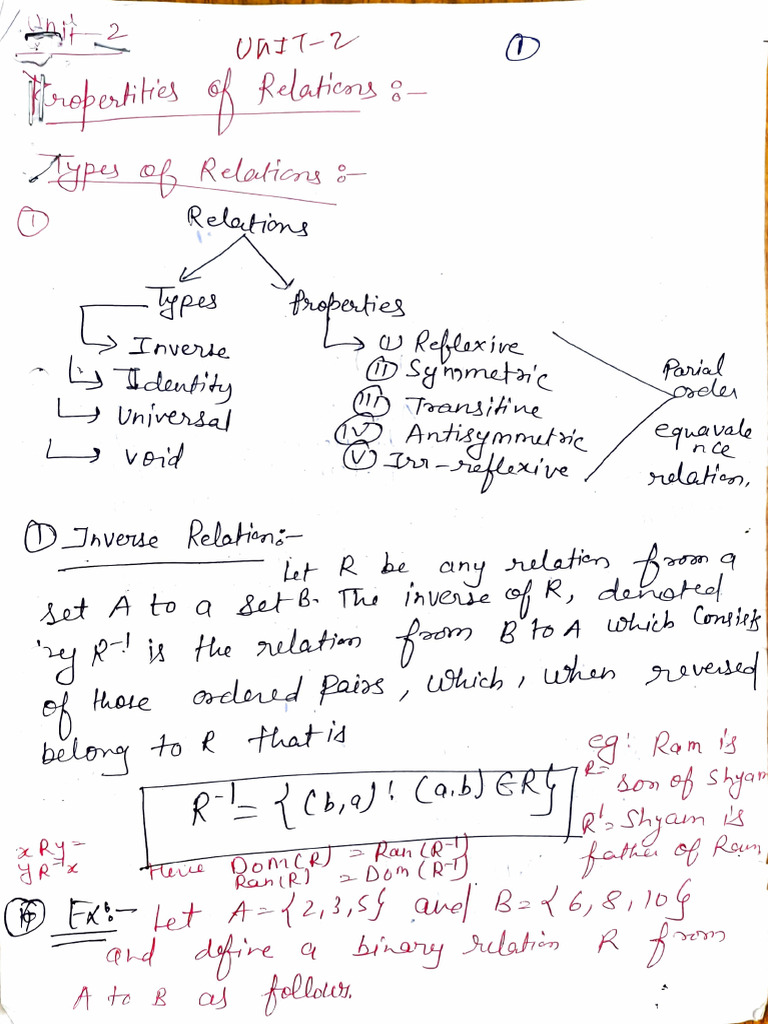 Unit-2
UNIT-2
①
Propertities of Relations :-
Types of Relations :-
①
Relations
Types
Properties
Inverse
Identity
Universal
void
(i) Reflexive
(II) Symmetric
(III) Transitive
(IV) Antisymmetric
(V) Irr-reflexive
Parial
order
equavale
nce
relation.
① Inverse Relation:-
Let R be any relation from a
set A to a set B. The inverse of R, denoted
by R⁻¹ is the relation from B to A which Consists
of those ordered pairs, which, when reversed
belong to R that is
R⁻¹ = { (b,a) : (a,b) ∈ R}
eg: Ram is
R= son of Shyam
R⁻¹= Shyam is
father of Ram
xRy =
yR⁻¹x
Here Dom(R) = Ran(R⁻¹)
Ran(R) = Dom(R⁻¹)
Ex:- Let A={2,3,5} and B={6,8,10}
and define a binary relation R from
A to B as follows.